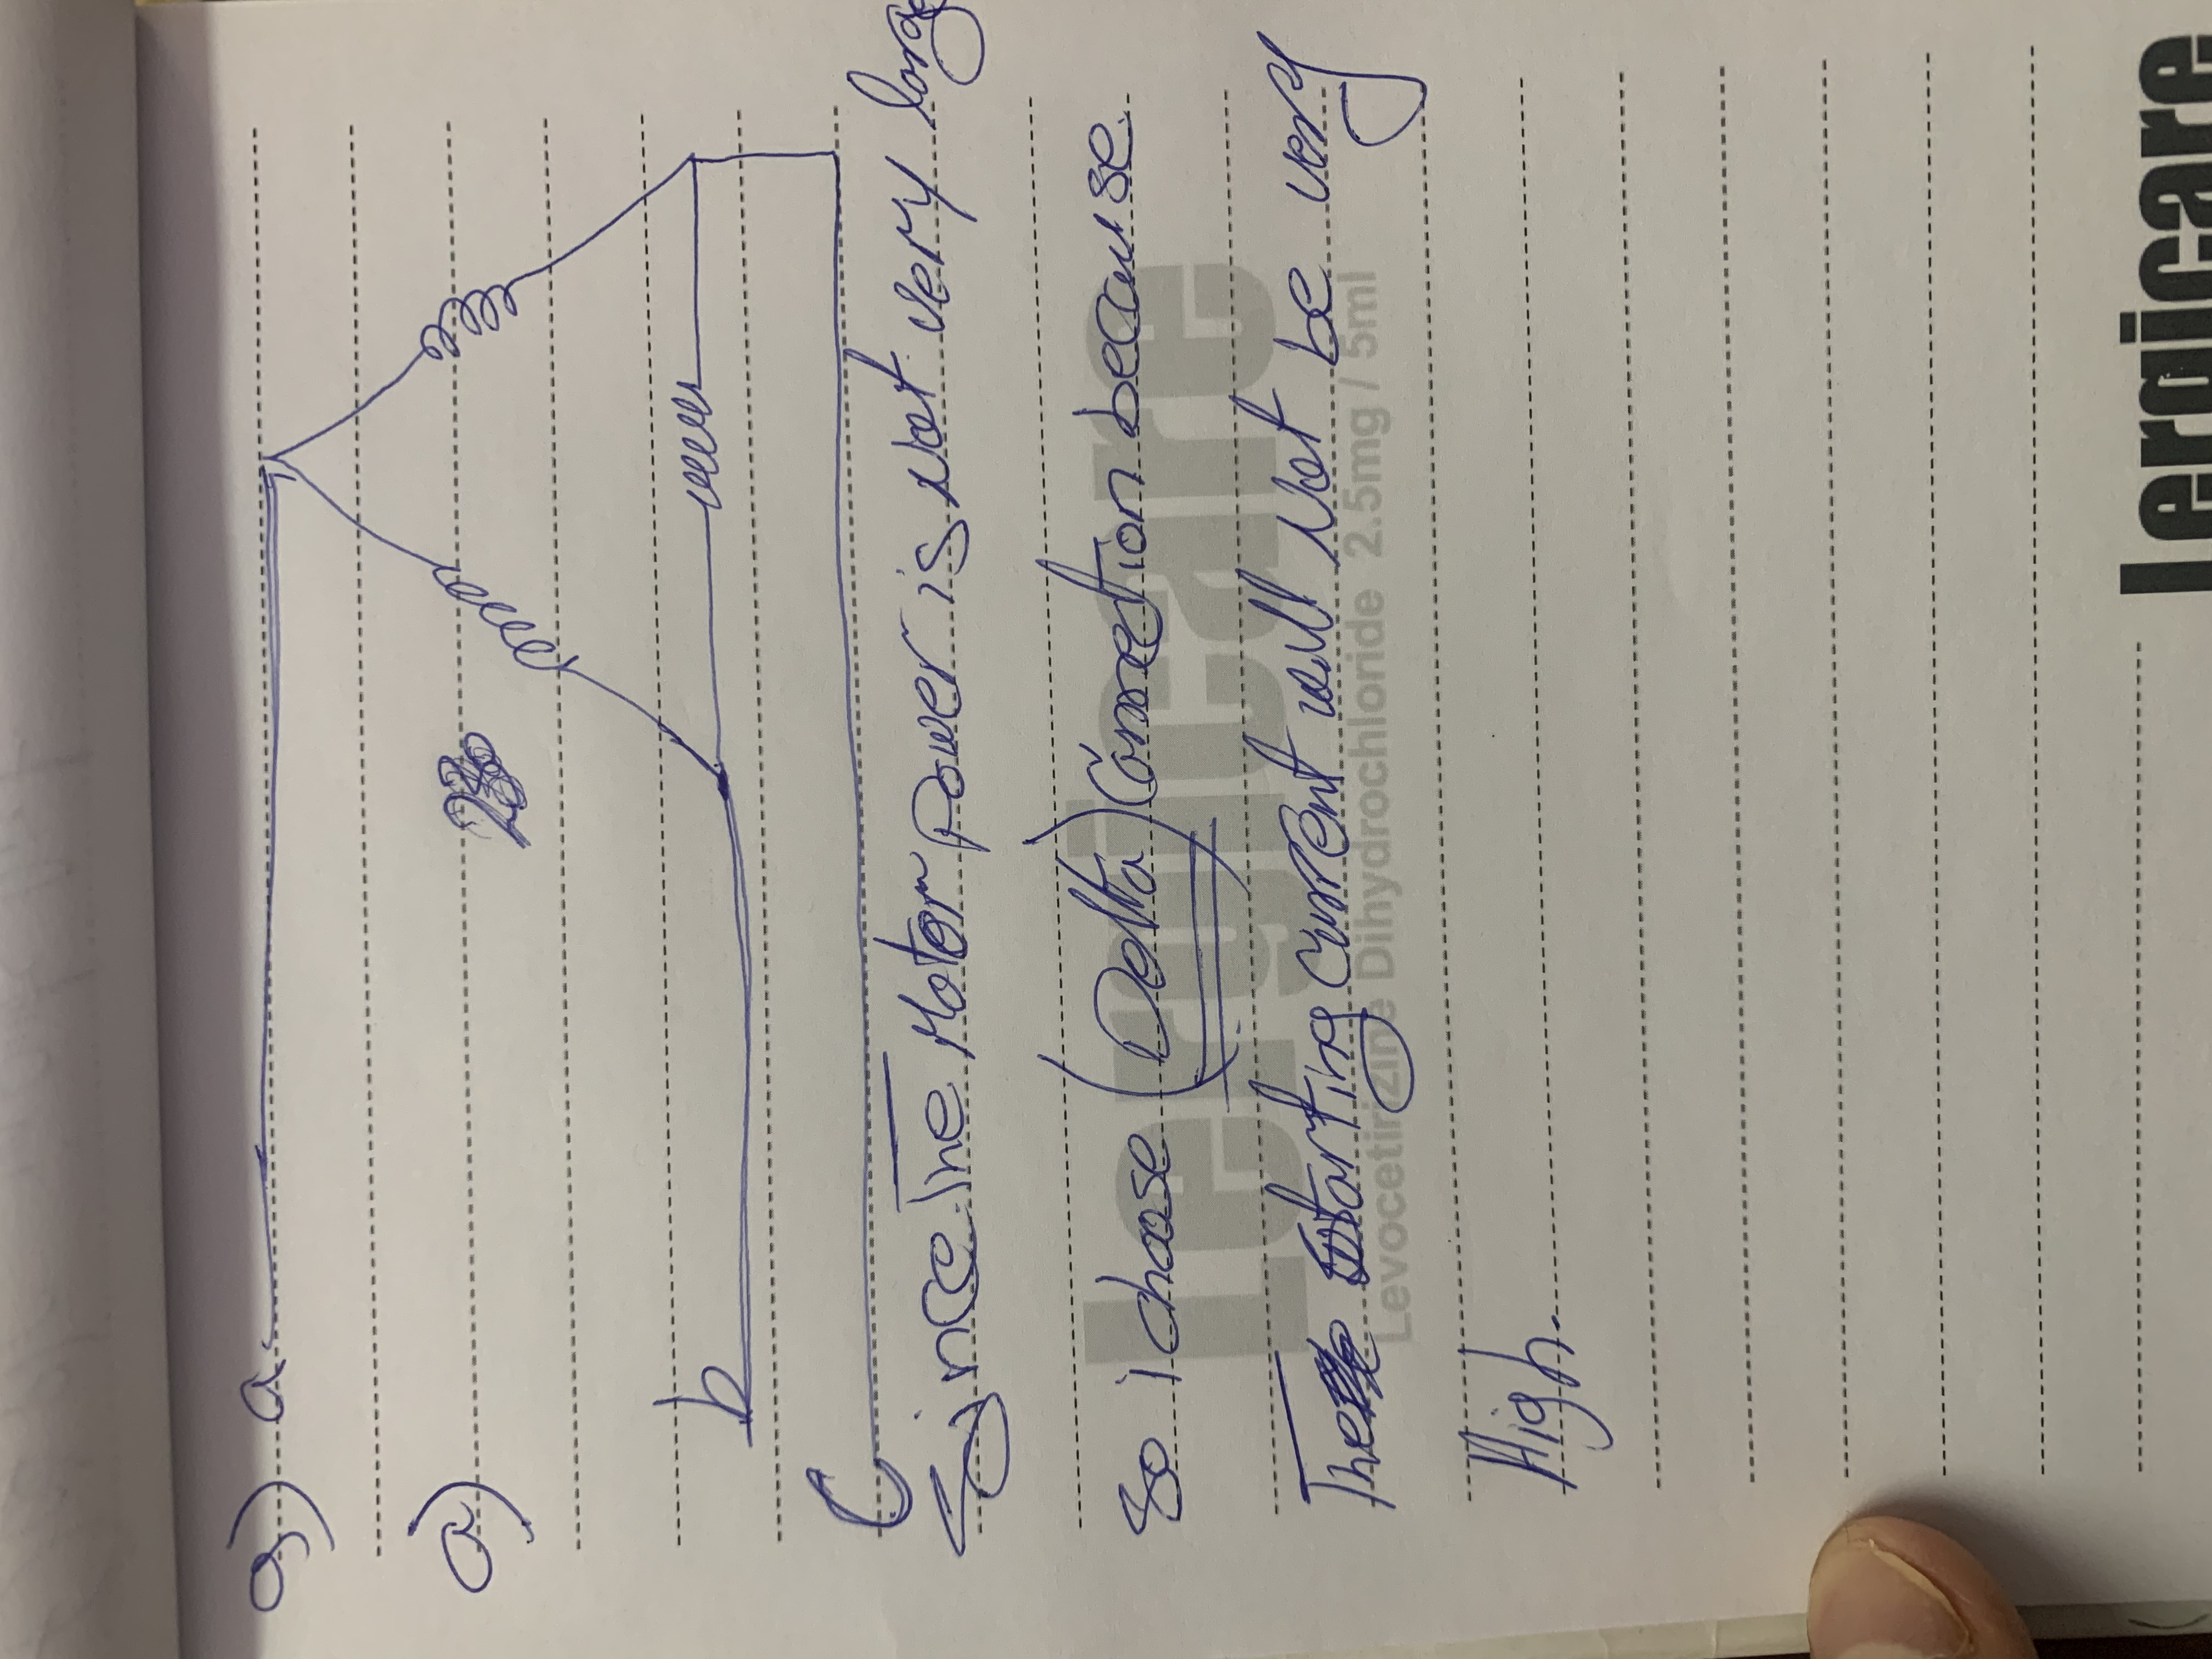 9) a
a)
b
C
Since The Motor Power is Not very large
So i choose (Delta) Connection because
The starting current will Not be very
High.
Lergicare
Levocetirizine Dihydrochloride 2.5mg / 5ml
Lergicare